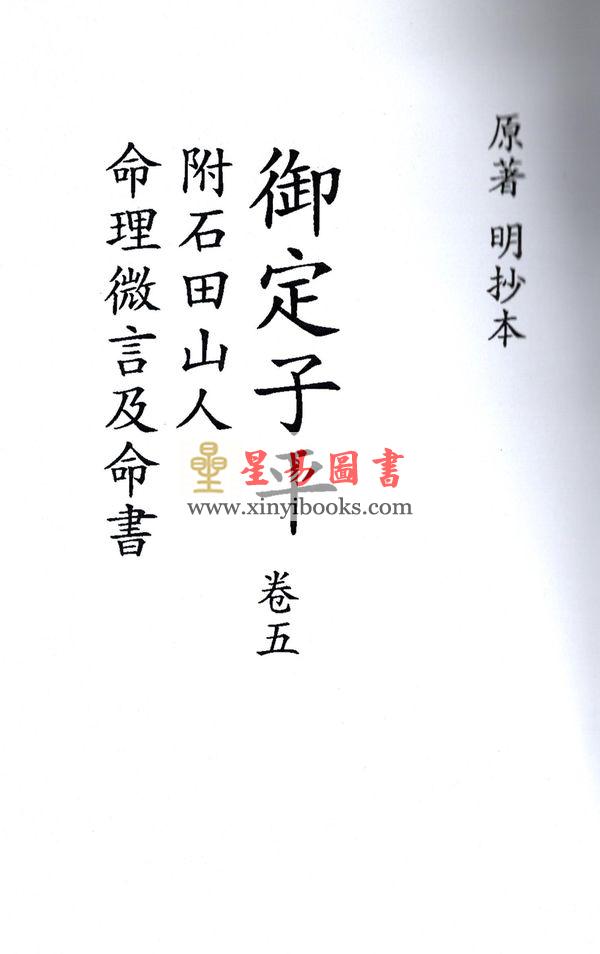 原著 明抄本
御定子平 卷五
附石田山人
命理微言及命書
星易圖書
www.xinyibooks.com